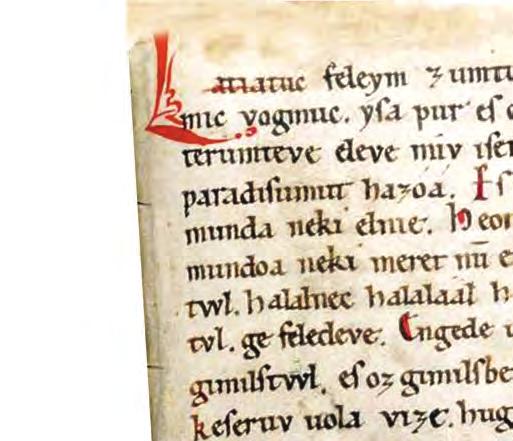 Latiatuc feleym zumtu
mic vogmuc. yſa pur eſ c
terumteve eleve miv iſe
paradiſumut hazoa. Eſ
munda neki elnie. Heon
mundoa neki meret nū e
twl. halalnec halalaal h
tvl. ge feledeve. Engede u
gimilſtwl. eſ oz gimilſbe
keſeruv uola vize. hug